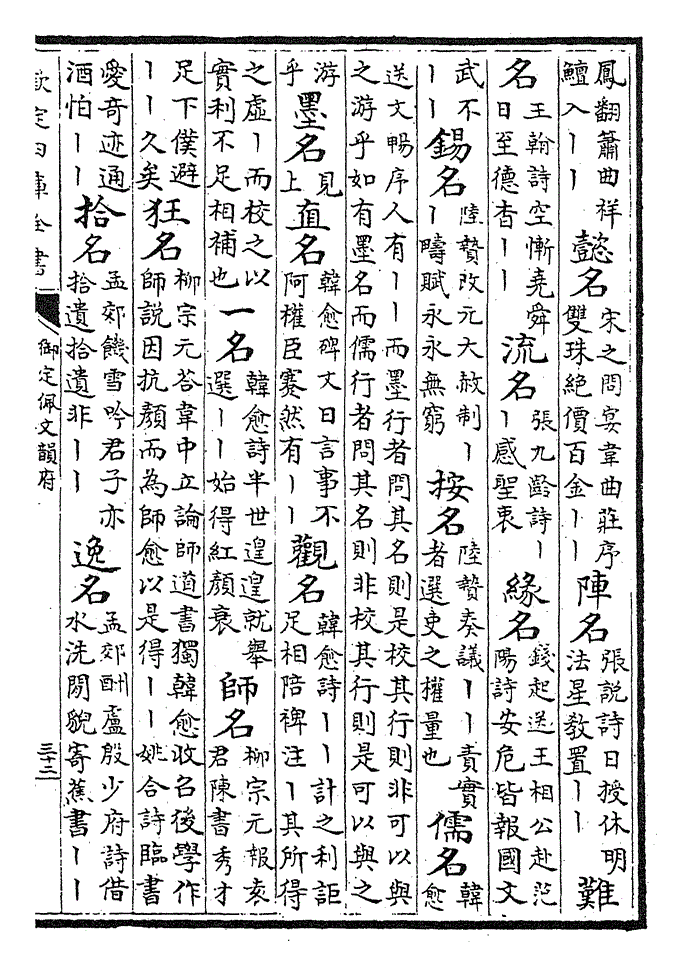 鳳翻簫曲祥鱣入｜｜ 懿名 宋之問宴韋曲莊序雙珠絶價百金｜｜ 陣名 張説詩日授休明法星敎置｜｜ 難
名 王翰詩空慚堯舜日至德杳｜｜ 流名 張九齡詩｜｜感聖衷 縁名 錢起送王相公赴范陽詩安危皆報國文
武不｜｜ 錫名 陸贄改元大赦制｜｜疇賦永永無窮 按名 陸贄奏議｜｜責實者選吏之權量也 儒名 韓愈
送文暢序人有｜｜而墨行者問其名則是校其行則非可以與之游乎如有墨名而儒行者問其名則非校其行則是可以與之
游乎 墨名 見上 直名 韓愈碑文曰言事不阿權臣蹇然有｜｜ 觀名 韓愈詩｜｜計之利詎足相陪裨注｜其所得
之虛｜而校之以實利不足相補也 一名 韓愈詩半世遑遑就舉選｜｜始得紅顔衰 師名 柳宗元報袁君陳書秀才
足下僕避｜｜久矣 狂名 柳宗元荅韋中立論師道書獨韓愈收名後學作師説因抗顔而為師愈以是得｜｜姚合詩臨書
愛奇迹通酒怕｜｜ 拾名 孟郊饑雪吟君子亦拾遺拾遺非｜｜ 逸名 孟郊酬盧殷少府詩借水洗閒貌寄蕉書｜｜
欽定四庫全書 御定佩文韻府 三十二